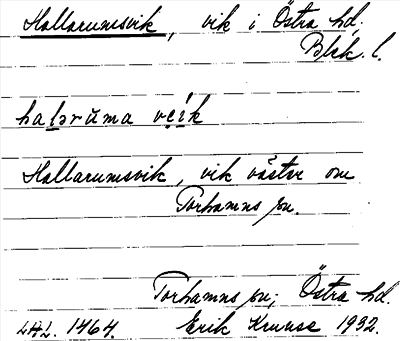 Hallarumsvik, vik i Östra hd.
Blek. l.
halərūma veik
Hallarumsvik, vik väster om
Torhamns sn.
Torhamns sn; Östra hd.
LHL. 1464. Erik Kruuse 1932.